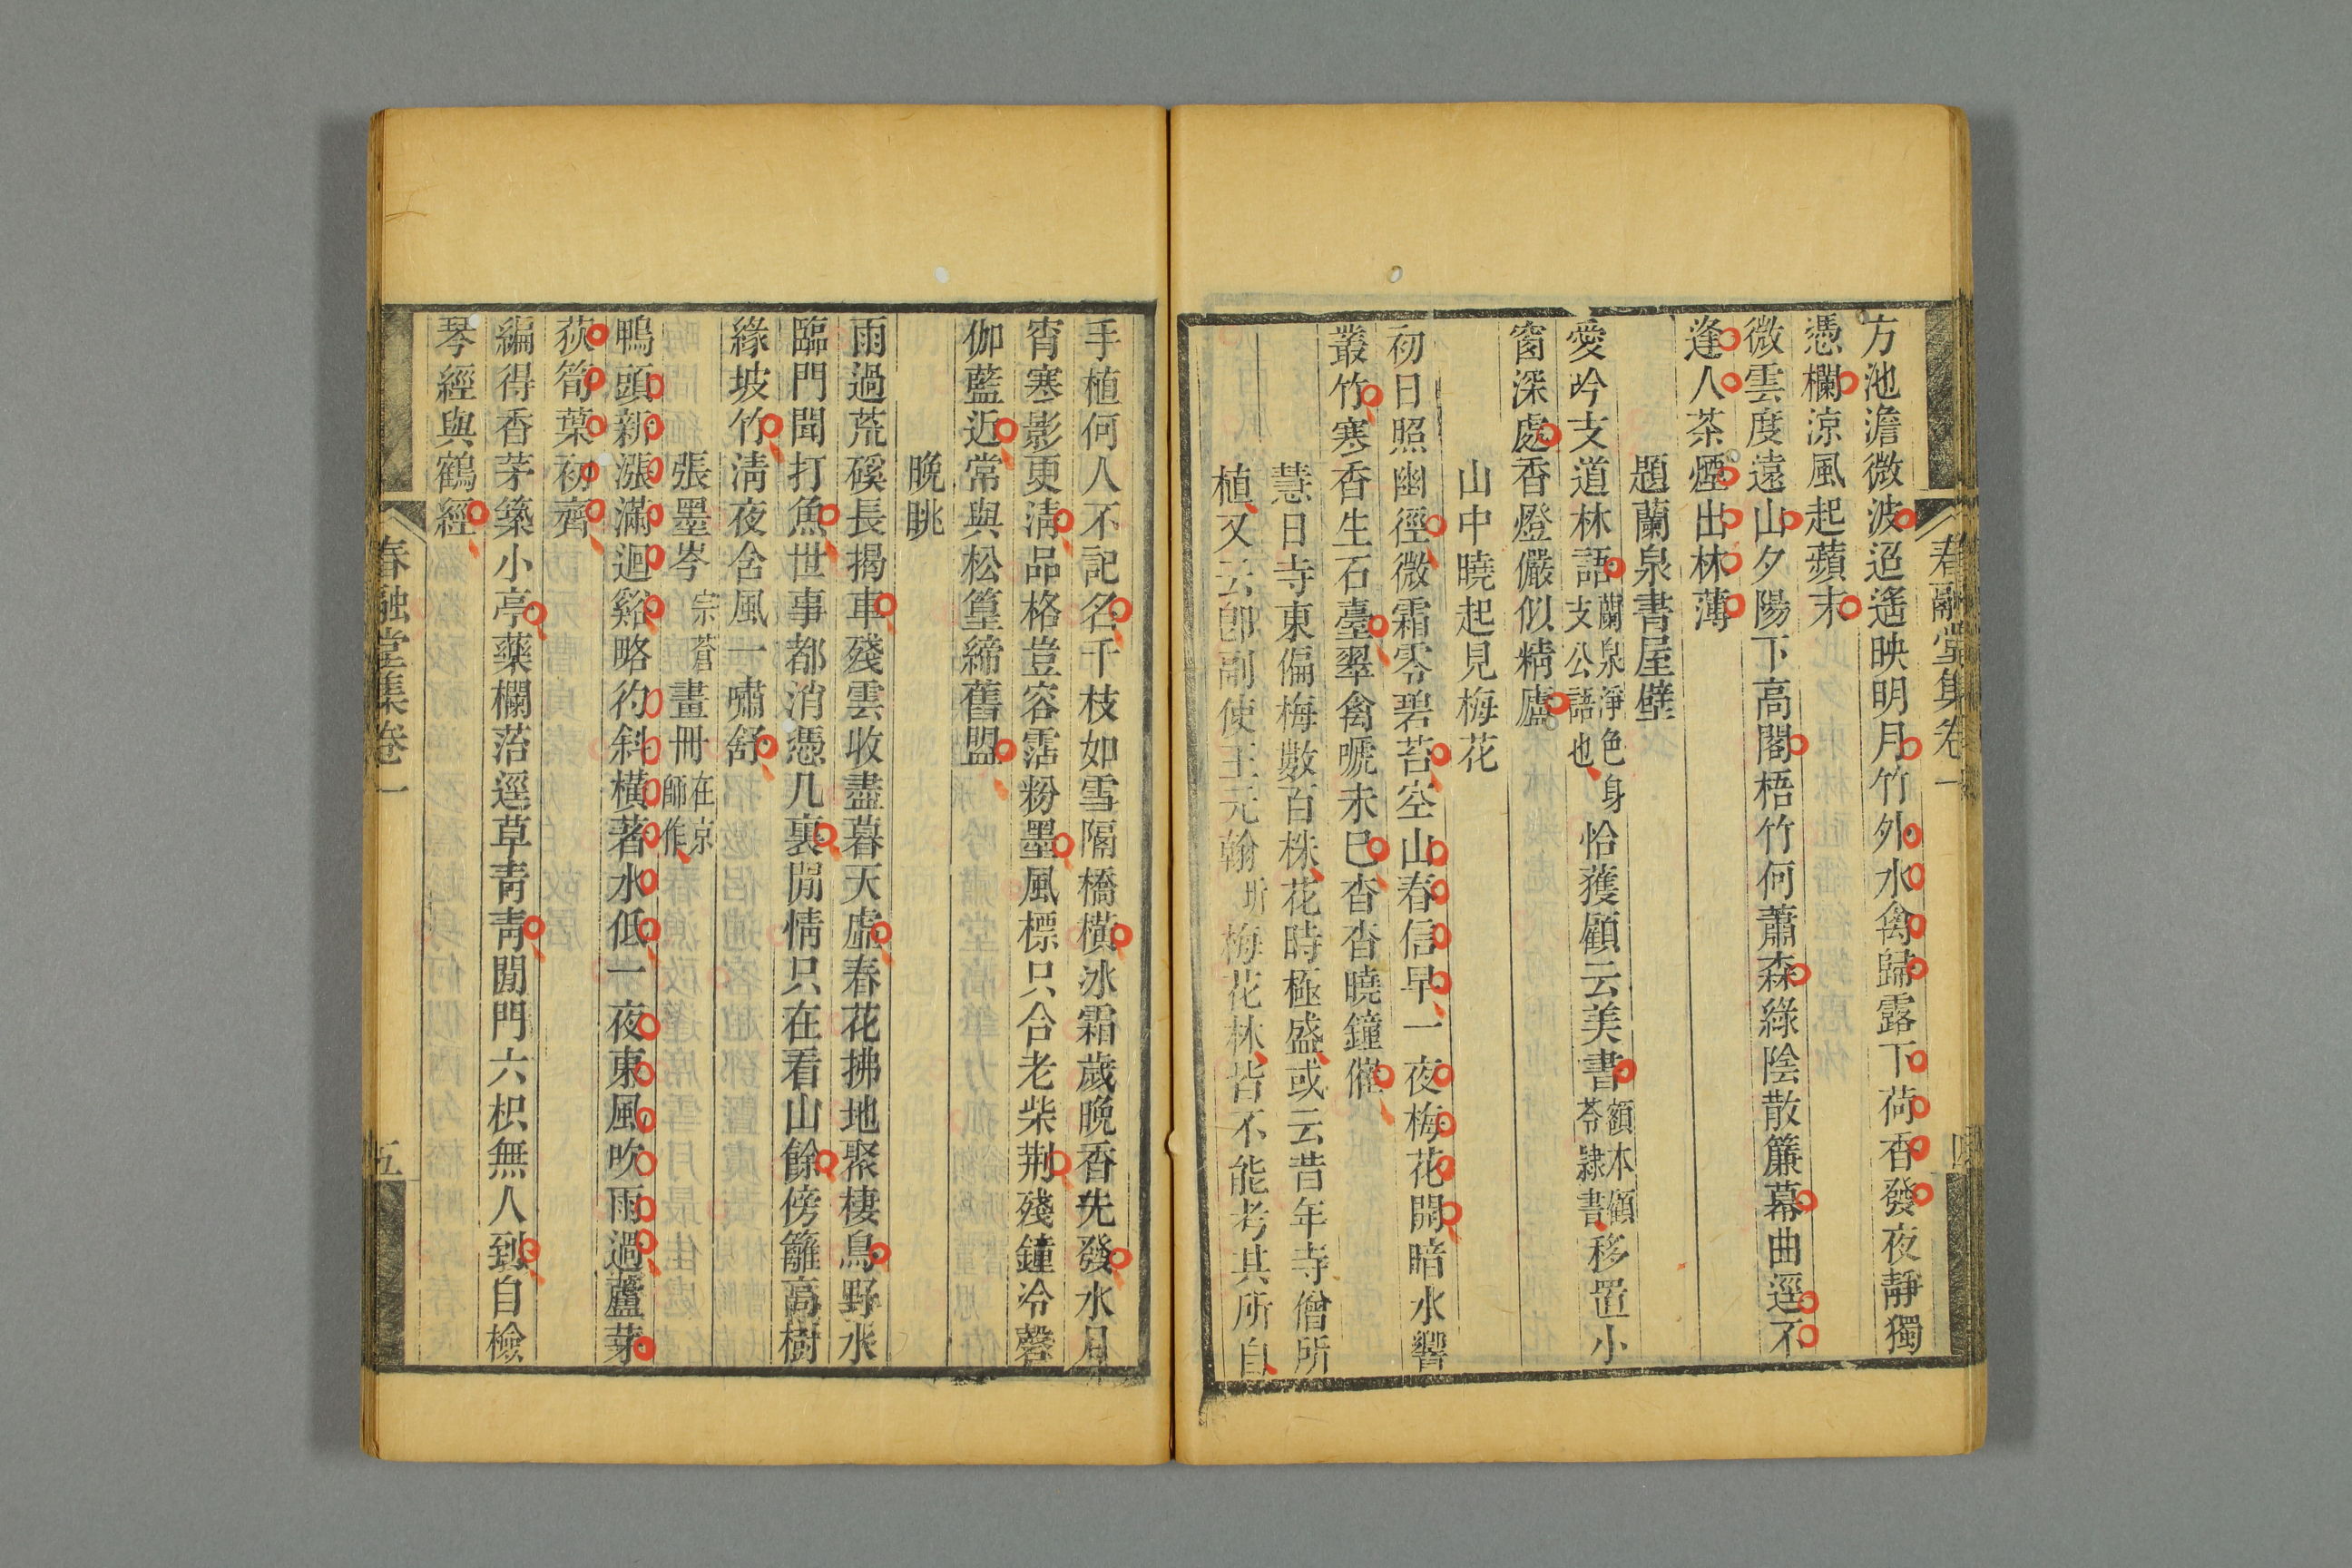 春融堂集卷一
方池澹微波迢遙映明月竹外水禽歸露下荷香發夜靜獨
憑欄涼風起蘋末
微雲度遠山夕陽下高閣梧竹何蕭森綠陰散簾幕曲逕不
逢人茶煙出林薄
題蘭泉書屋壁
愛吟支道林語蘭泉淨色身支公語也恰獲顧云美書額本顧苓隸書移置小
窗深處香燈儼似精廬
山中曉起見梅花
初日照幽徑微霜零碧苔空山春信早一夜梅花開暗水響
叢竹寒香生石臺翠禽嗁未已杳杳曉鐘催
慧日寺東偏梅數百株花時極盛或云昔年寺僧所
植又云郎副使王元翰所梅花林皆不能考其所自
手植何人不記名千枝如雪隔橋橫冰霜歲晚香先發水月
宵寒影更淸品格豈容霑粉墨風標只合老柴荆殘鐘冷磬
伽藍近常與松篁締舊盟
晚眺
雨過荒磎長揭車殘雲收盡暮天虛春花拂地聚棲鳥野水
臨門聞打魚世事都消憑几裏閒情只在看山餘傍籬高樹
緣坡竹淸夜含風一嘯舒
張墨岑宗蒼畫冊在京師作
鴨頭新漲滿迴谿略彴斜橫著水低一夜東風吹雨過蘆芽
荻筍葉初齊
編得香茅築小亭藥欄菭逕草靑靑閒門六枳無人到自檢
琴經與鶴經
春融堂集卷一
五